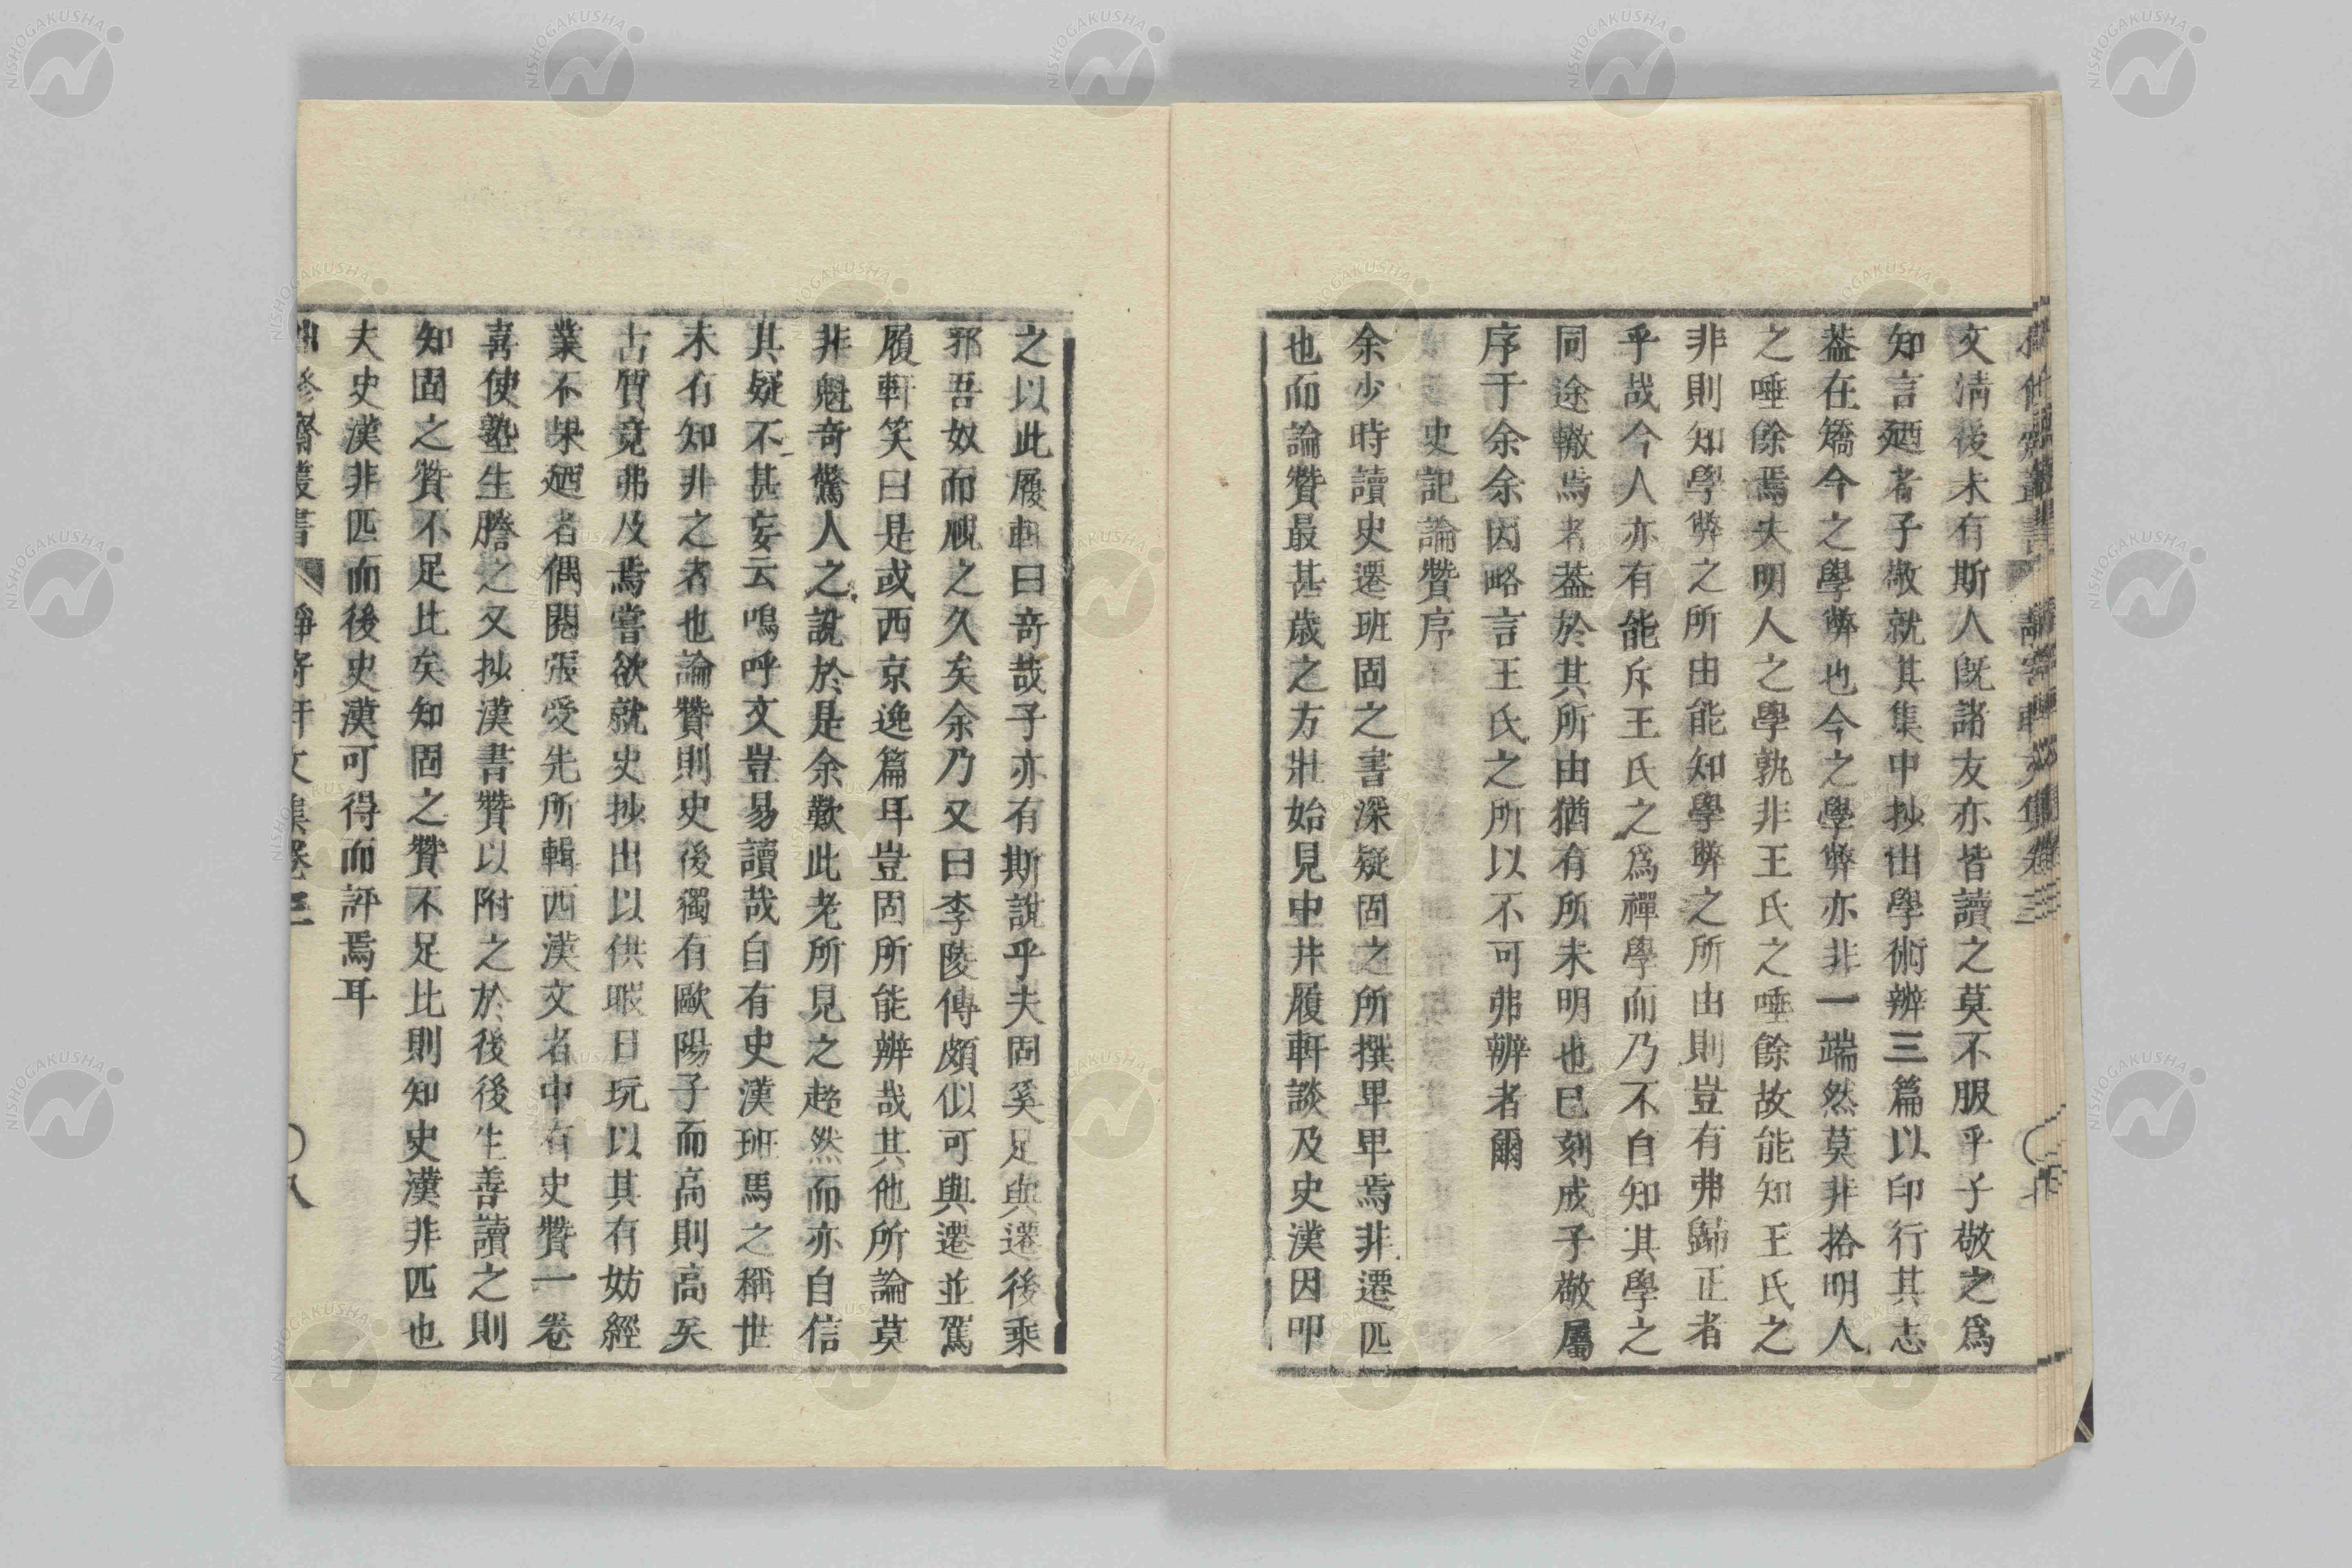 文清後未有斯人既諸友亦皆讀之莫不服乎子敬之爲
知言廼者子敬就其集中抄出學術辨三篇以印行其志
葢在矯今之學弊也今之學弊亦非一端然莫非拾明人
之唾餘焉夫明人之學孰非王氏之唾餘故能知王氏之
非則知學弊之所由能知學弊之所由則豈有弗歸正者
乎哉今人亦有能斥王氏之爲禪學而乃不自知其學之
同途轍焉者葢於其所由猶有所未明也已刻成子敬屬
序于余余因略言王氏之所以不可弗辨者爾
史記論贊序
余少時讀史遷班固之書深疑固之所撰卑卑焉非遷匹
也而論贊最甚歲之方壯始見中井履軒談及史漢因叩
之以此履軒曰奇哉子亦有斯說乎夫固奚足與遷後乘
邪吾奴而視之久矣余乃又曰李陵傳頗似可與遷並駕
履軒笑曰是或西京逸篇耳豈固所能辨哉其他所論莫
非魁奇驚人之說於是余歎此老所見之超然而亦自信
其疑不甚妄云嗚呼文豈易讀哉自有史漢班馬之稱世
未有知非之者也論贊則史後獨有歐陽子而高則高矣
古質竟弗及焉嘗欲就史抄出以供暇日玩以其有妨經
業不果廼者偶閱張愛先所輯西漢文者中有史贊一卷
喜使塾生謄之又抄漢書贊以附之於後後生善讀之則
知固之贊不足比矣知固之贊不足比則知史漢非匹也
夫史漢非匹而後史漢可得而評焉耳
叢書 靜寄軒文集卷三 〇八